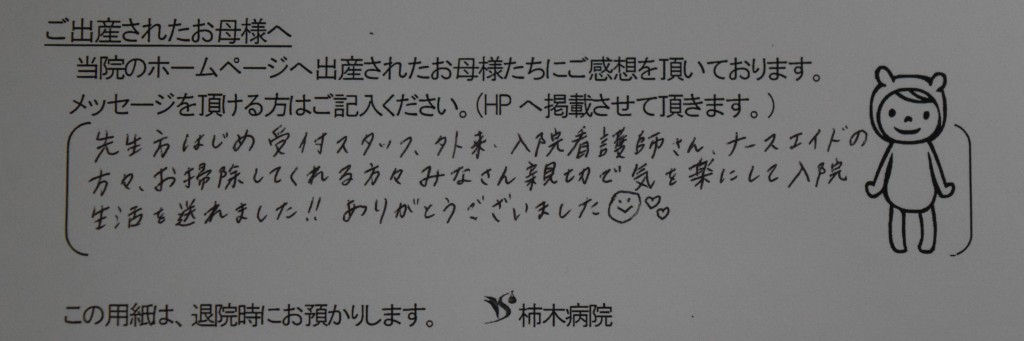 ご出産されたお母様へ
当院のホームページへ出産されたお母様たちにご感想を頂いております。
メッセージを頂ける方はご記入ください。(HPへ掲載させて頂きます。)
先生方はじめ受付スタッフ、外来・入院看護師さん、ナースエイドの
方々、お掃除してくれる方々みなさん親切で気を楽にして入院
生活を送れました!! ありがとうございました
この用紙は、退院時にお預かりします。 柿木病院